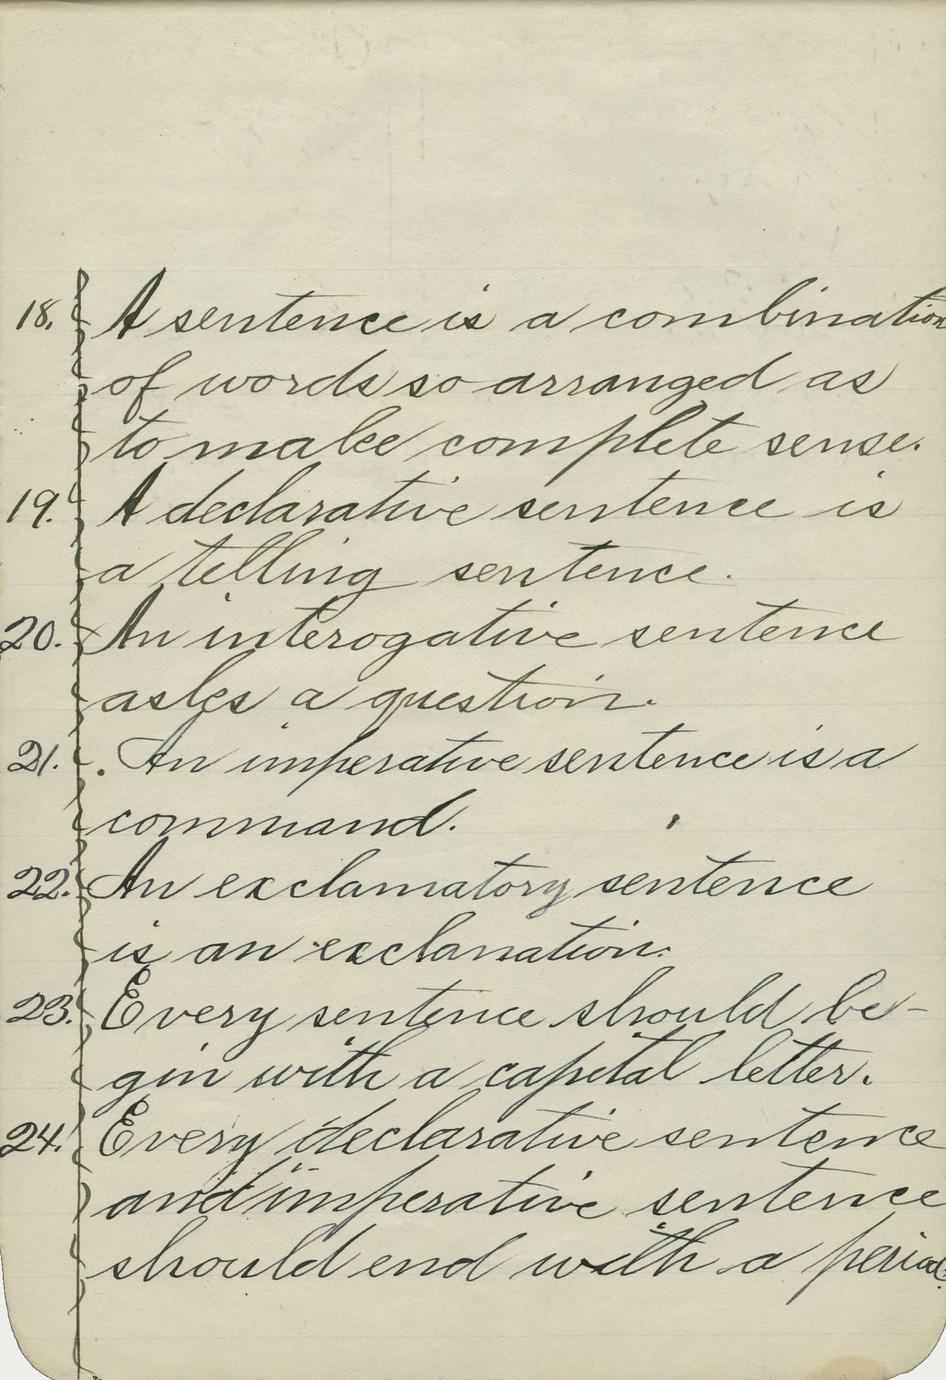 18. A sentence is a combination
of words so arranged as
to make complete sense.
19. A declarative sentence is
a telling sentence.
20. An interogative sentence
asks a question.
21. An imperative sentence is a
command.
22. An exclamatory sentence
is an exclamation.
23. Every sentence should be-
gin with a capital letter.
24. Every declarative sentence
and imperative sentence
should end with a period.